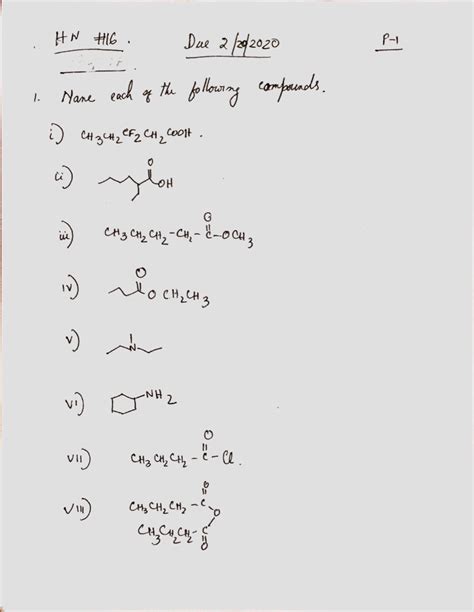 HN #16. Due 2/20/2020 P-1
1. Name each of the following compounds.
i) CH3CH2CF2CH2COOH.
ii) O OH
iii) CH3CH2CH2-CH2-C-OCH3 O
iv) O O CH2CH3
v) N
vi) NH2
vii) CH3CH2CH2-C-Cl. O
viii) CH3CH2CH2-C O
O
CH3CH2CH2-C O